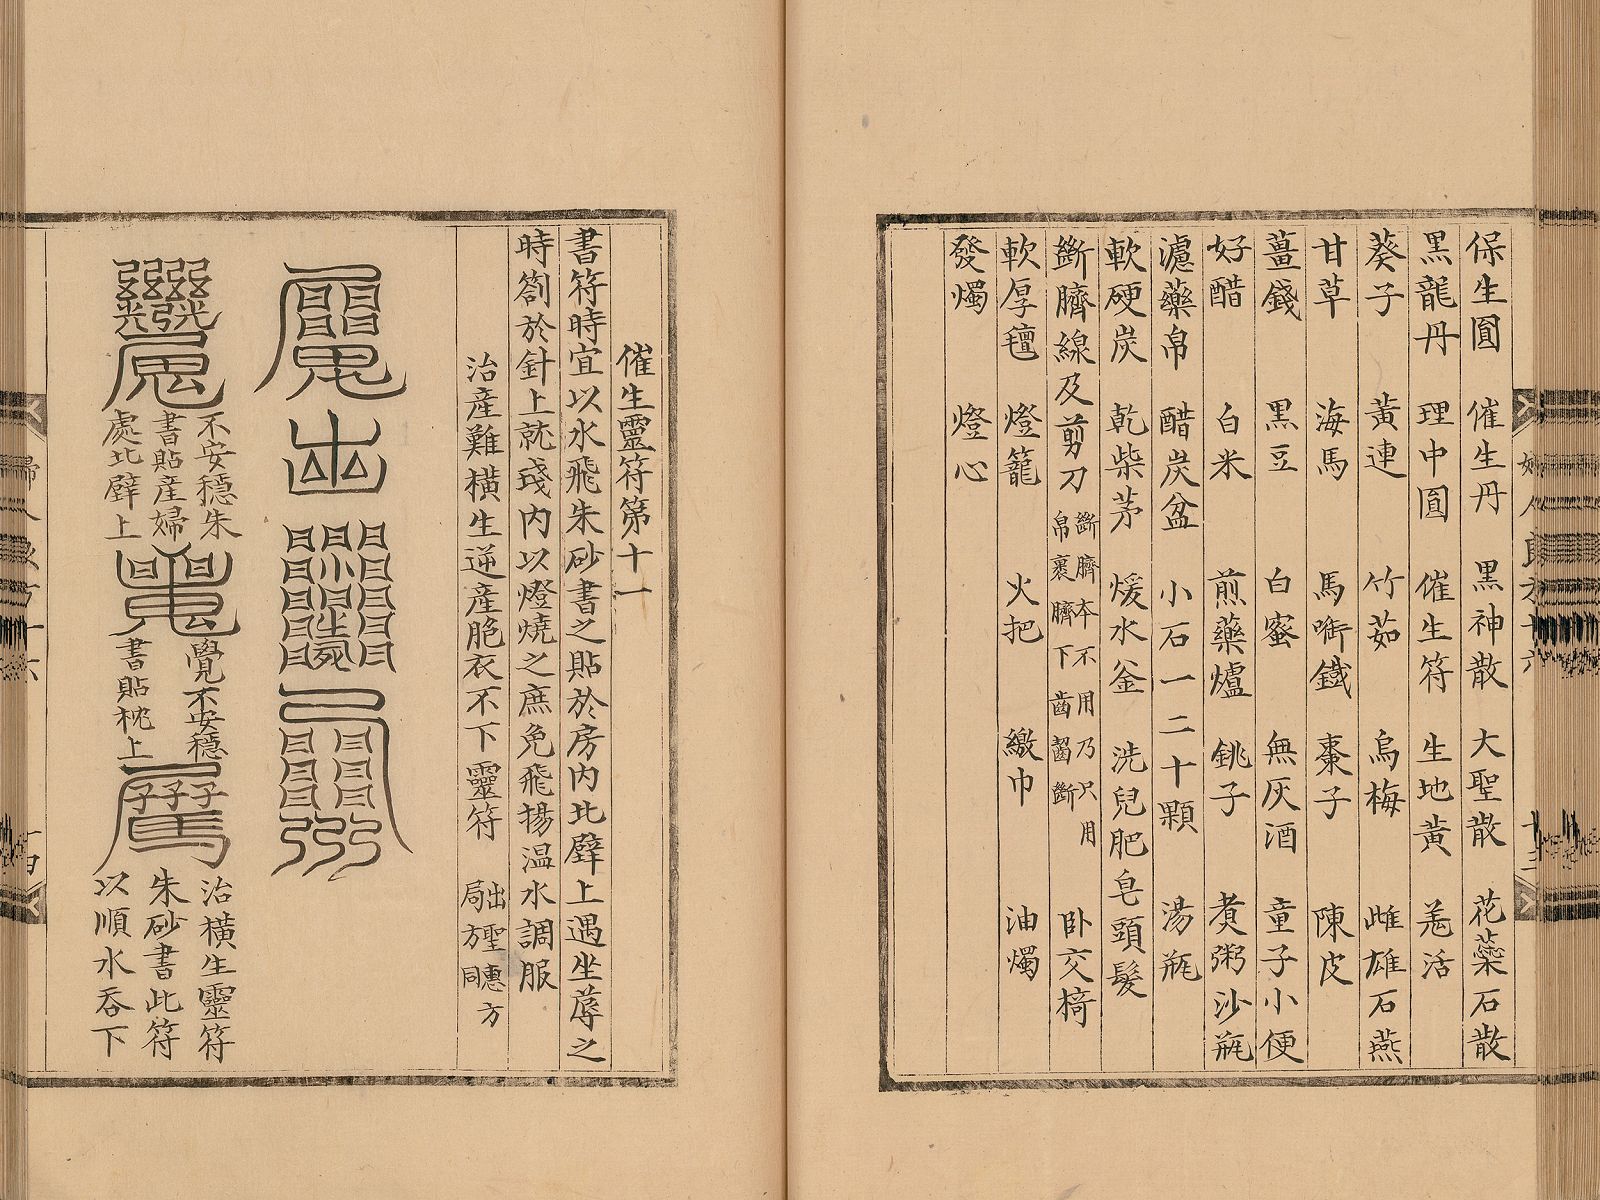 保生圓 催生丹 黒神散 大聖散 花蘂石散
黒龍丹 理中圓 催生符 生地黄 羌活
葵子 黃連 竹茹 烏梅 雌雄石燕
甘草 海馬 馬啣鐵 棗子 陳皮
薑錢 黒豆 白蜜 無灰酒 童子小便
好醋 白米 煎藥爐 銚子 煮粥沙瓶
濾藥帛 醋炭盆 小石一二十顆 湯瓶
軟硬炭 乾柴茅 煖水釜 洗兒肥皂頭髮
斷臍線及剪刀 斷臍本不用乃只用
帛裹臍下齒齧斷 卧交椅
軟厚氊 燈籠 火把 繳巾 油燭
發燭 燈心
催生靈符第十一
書符時宜以水飛朱砂書之貼於房内北壁上遇坐蓐之
時劄於針上就戔内以燈燒之庶免飛揚温水調服
治產難橫生逆產胞衣不下靈符 出聖惠方
局方同
不安穩朱
書貼産婦
處北壁上
覺不安穩
書貼枕上
治橫生靈符
朱砂書此符
以順水吞下